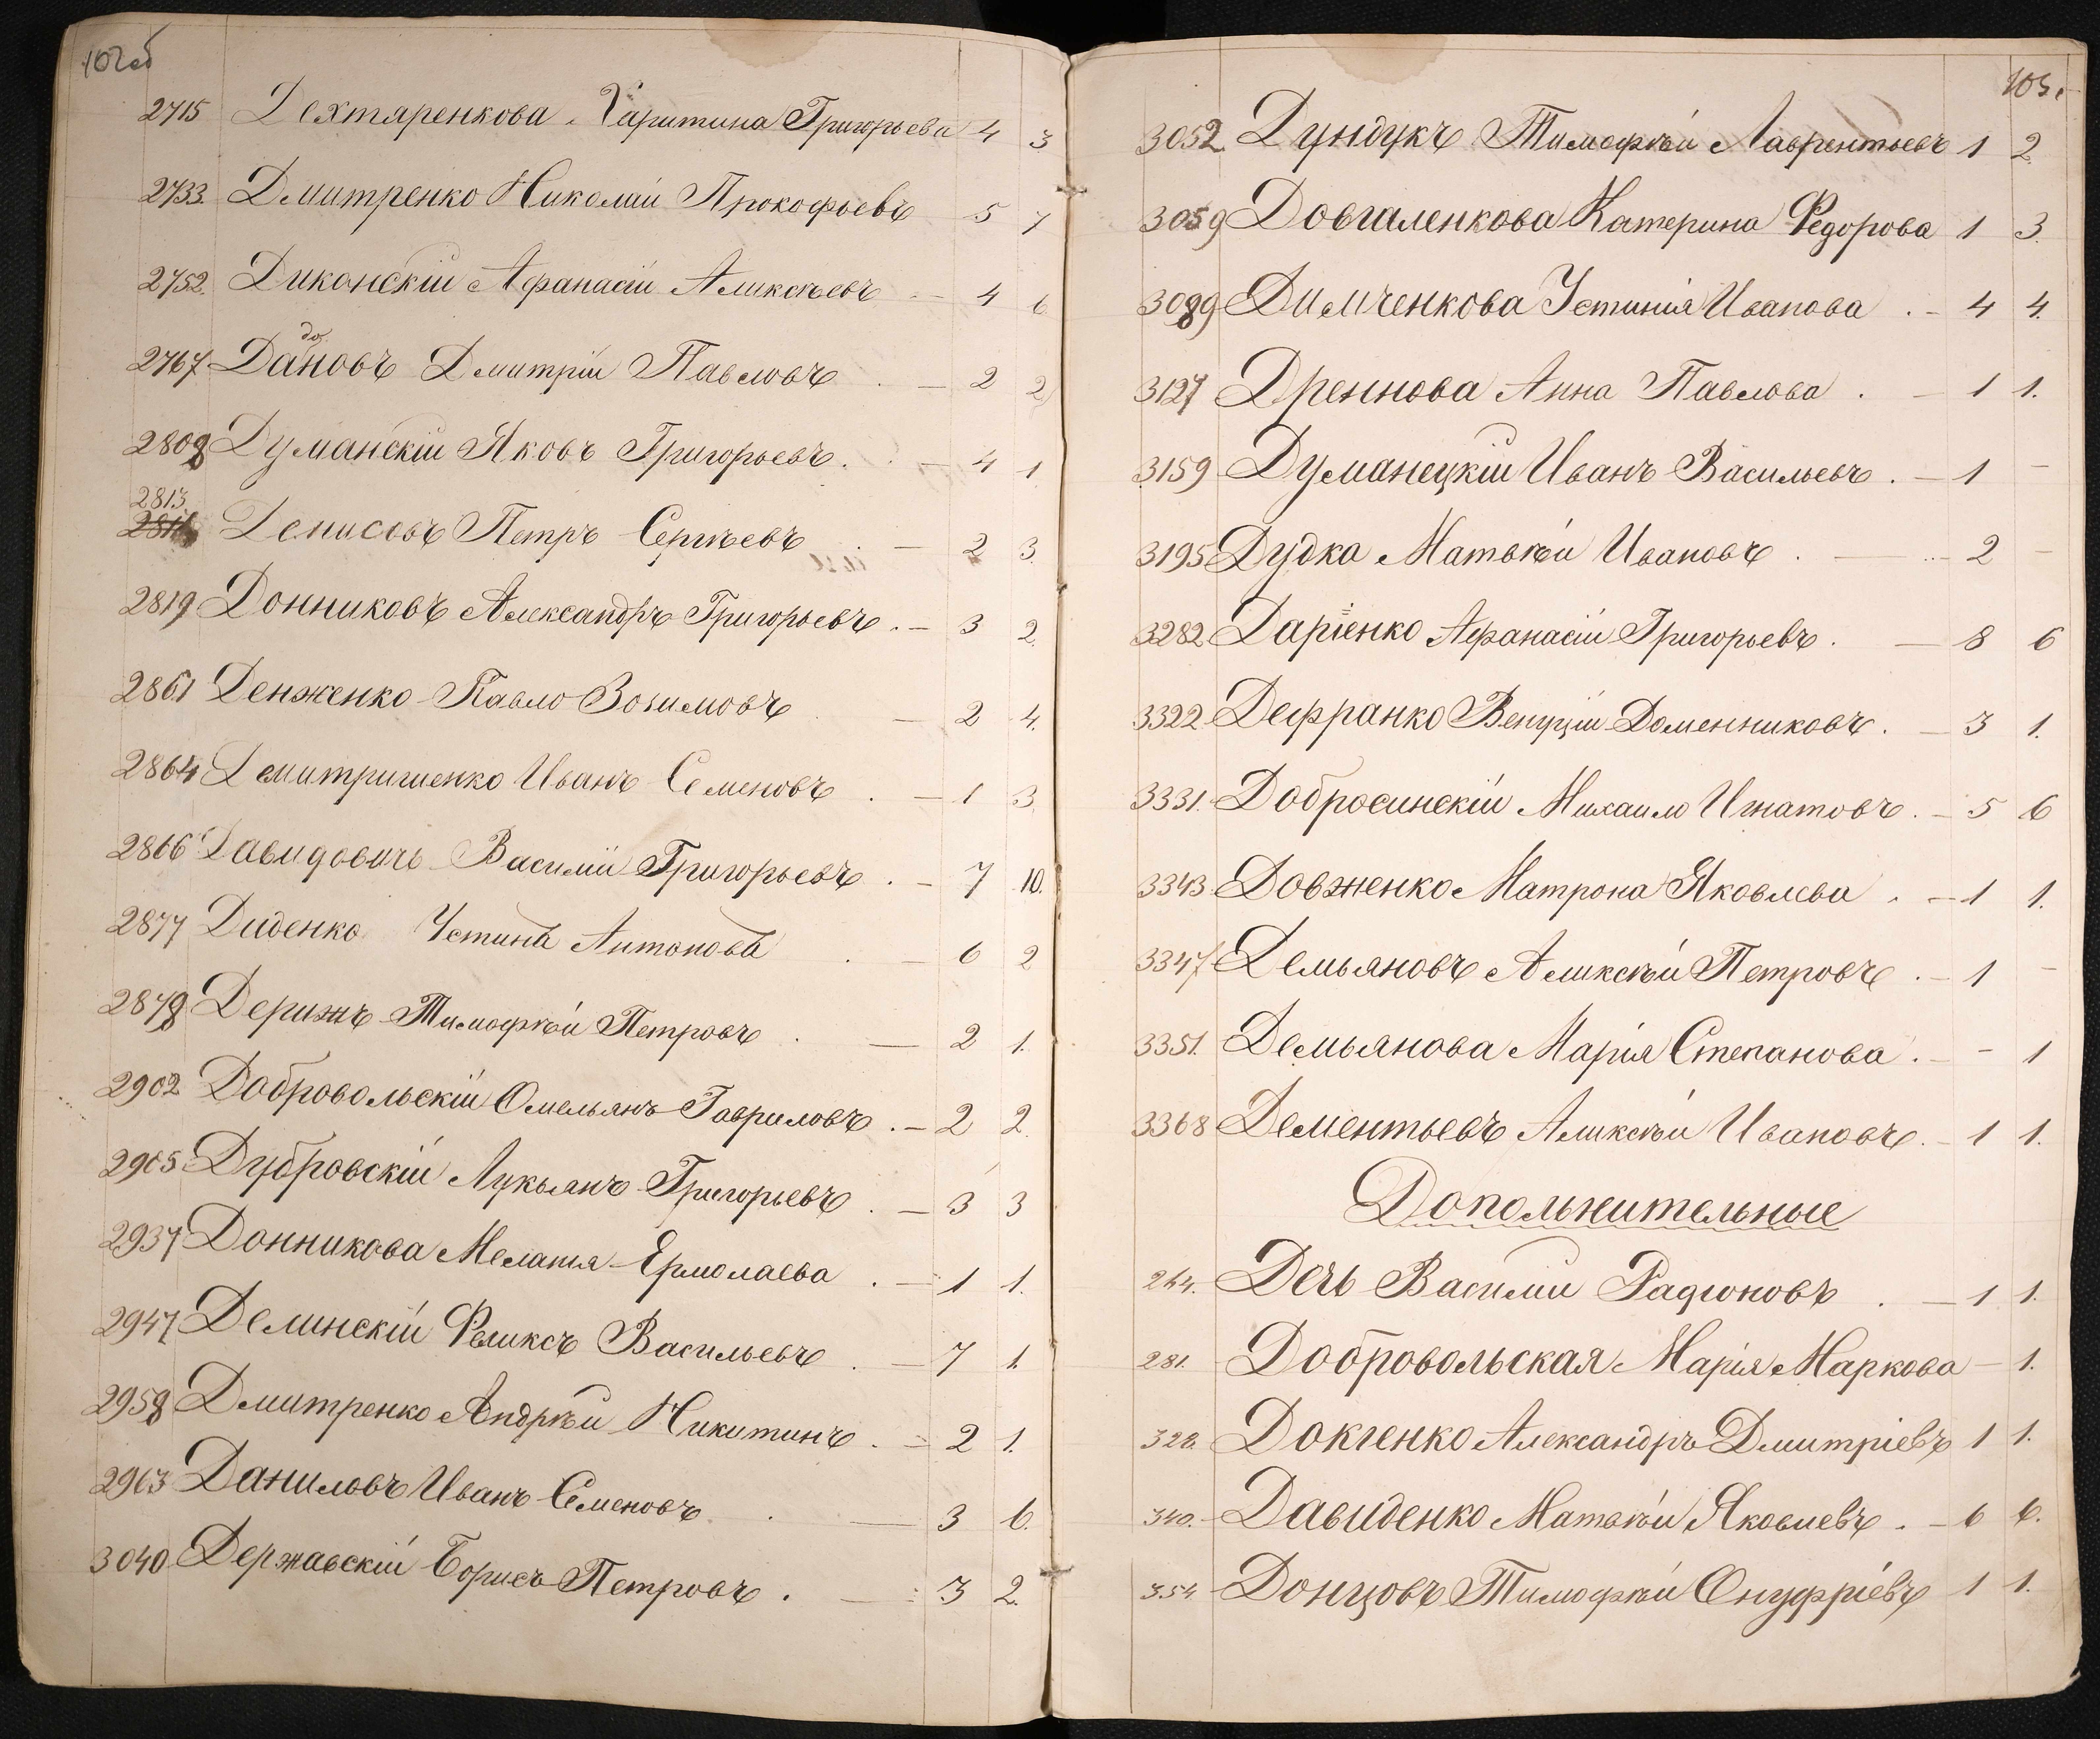 102об
2715 Дехтяренкова Харитина Григорьева 4 3
2733. Дмитренко Николай Прокофьевъ 5 7
2752. Диконскій Афанасій Аликсѣевъ - 4 6
до
2767 Дановъ Дмитрій Павловъ . - 2 2
2808 Думанскій Яковъ Григорьевъ . - 4 1
2813
Денисовъ Петръ Сергѣевъ . - 2 3.
2819 Донниковъ Александръ Григорьевъ . - 3 2.
2861 Денженко Павло Зосимовъ - 2 4.
2864 Демитришенко Иванъ Семеновъ . - 1 3.
2866 Давидовичъ Василій Григорьевъ . - 7 10.
2877 Диденко Устина Антонова . - 6 2
2878 Дерижъ Тимофѣй Петровъ . - 2 1.
2902 Добровольскій Омельянъ Гавриловъ . - 2 2.
2905 Дубровскій Лукьянъ Григорьевъ . - 3 3
2937 Донникова Меланія Ермолаева . - 1 1.
2947 Делинскій Феликсъ Васильевъ . - 7 1.
2958 Дмитренко Андрѣй Никитинъ . - 2 1.
2963 Даниловъ Иванъ Семеновъ . - 3 6.
3040 Державскій Борисъ Петровъ . - 3 2.
103.
3052 Дундукъ Тимофѣй Лаврентьевъ 1 2.
3059 Довгаленкова Катерина Федорова 1 3.
3089 Димченкова Устинія Иванова . - 4 4.
3127 Дреннова Анна Павлова . - 1 1.
3159 Думанецкій Иванъ Васильевъ . - 1 -
3195 Дудка Матвѣй Ивановъ . - 2 -
3282 Даріенко Афанасій Григорьевъ . - 8 6
3322 Дефранко Венуцій Доменниковъ . - 3 1.
3331. Добросинскій Михаило Игнатовъ . - 5 6
3343 Довженко Матрона Яковлева . - 1 1.
3347 Демьяновъ Аликсѣй Петровъ . - 1 -
3351. Демьянова Марія Степанова . - - 1
3368 Дементьевъ Аликсѣй Ивановъ . - 1 1.
Допольнительные
264. Дечь Василій Радіоновъ . - 1 1.
281. Добровольская Марія Маркова - 1.
328. Докіенко Александръ Дмитріевъ 1 1.
340. Давиденко Матвѣй Яковлевъ . - 6 6.
354 Донцовъ Тимофѣй Онуфріевъ 1 1.